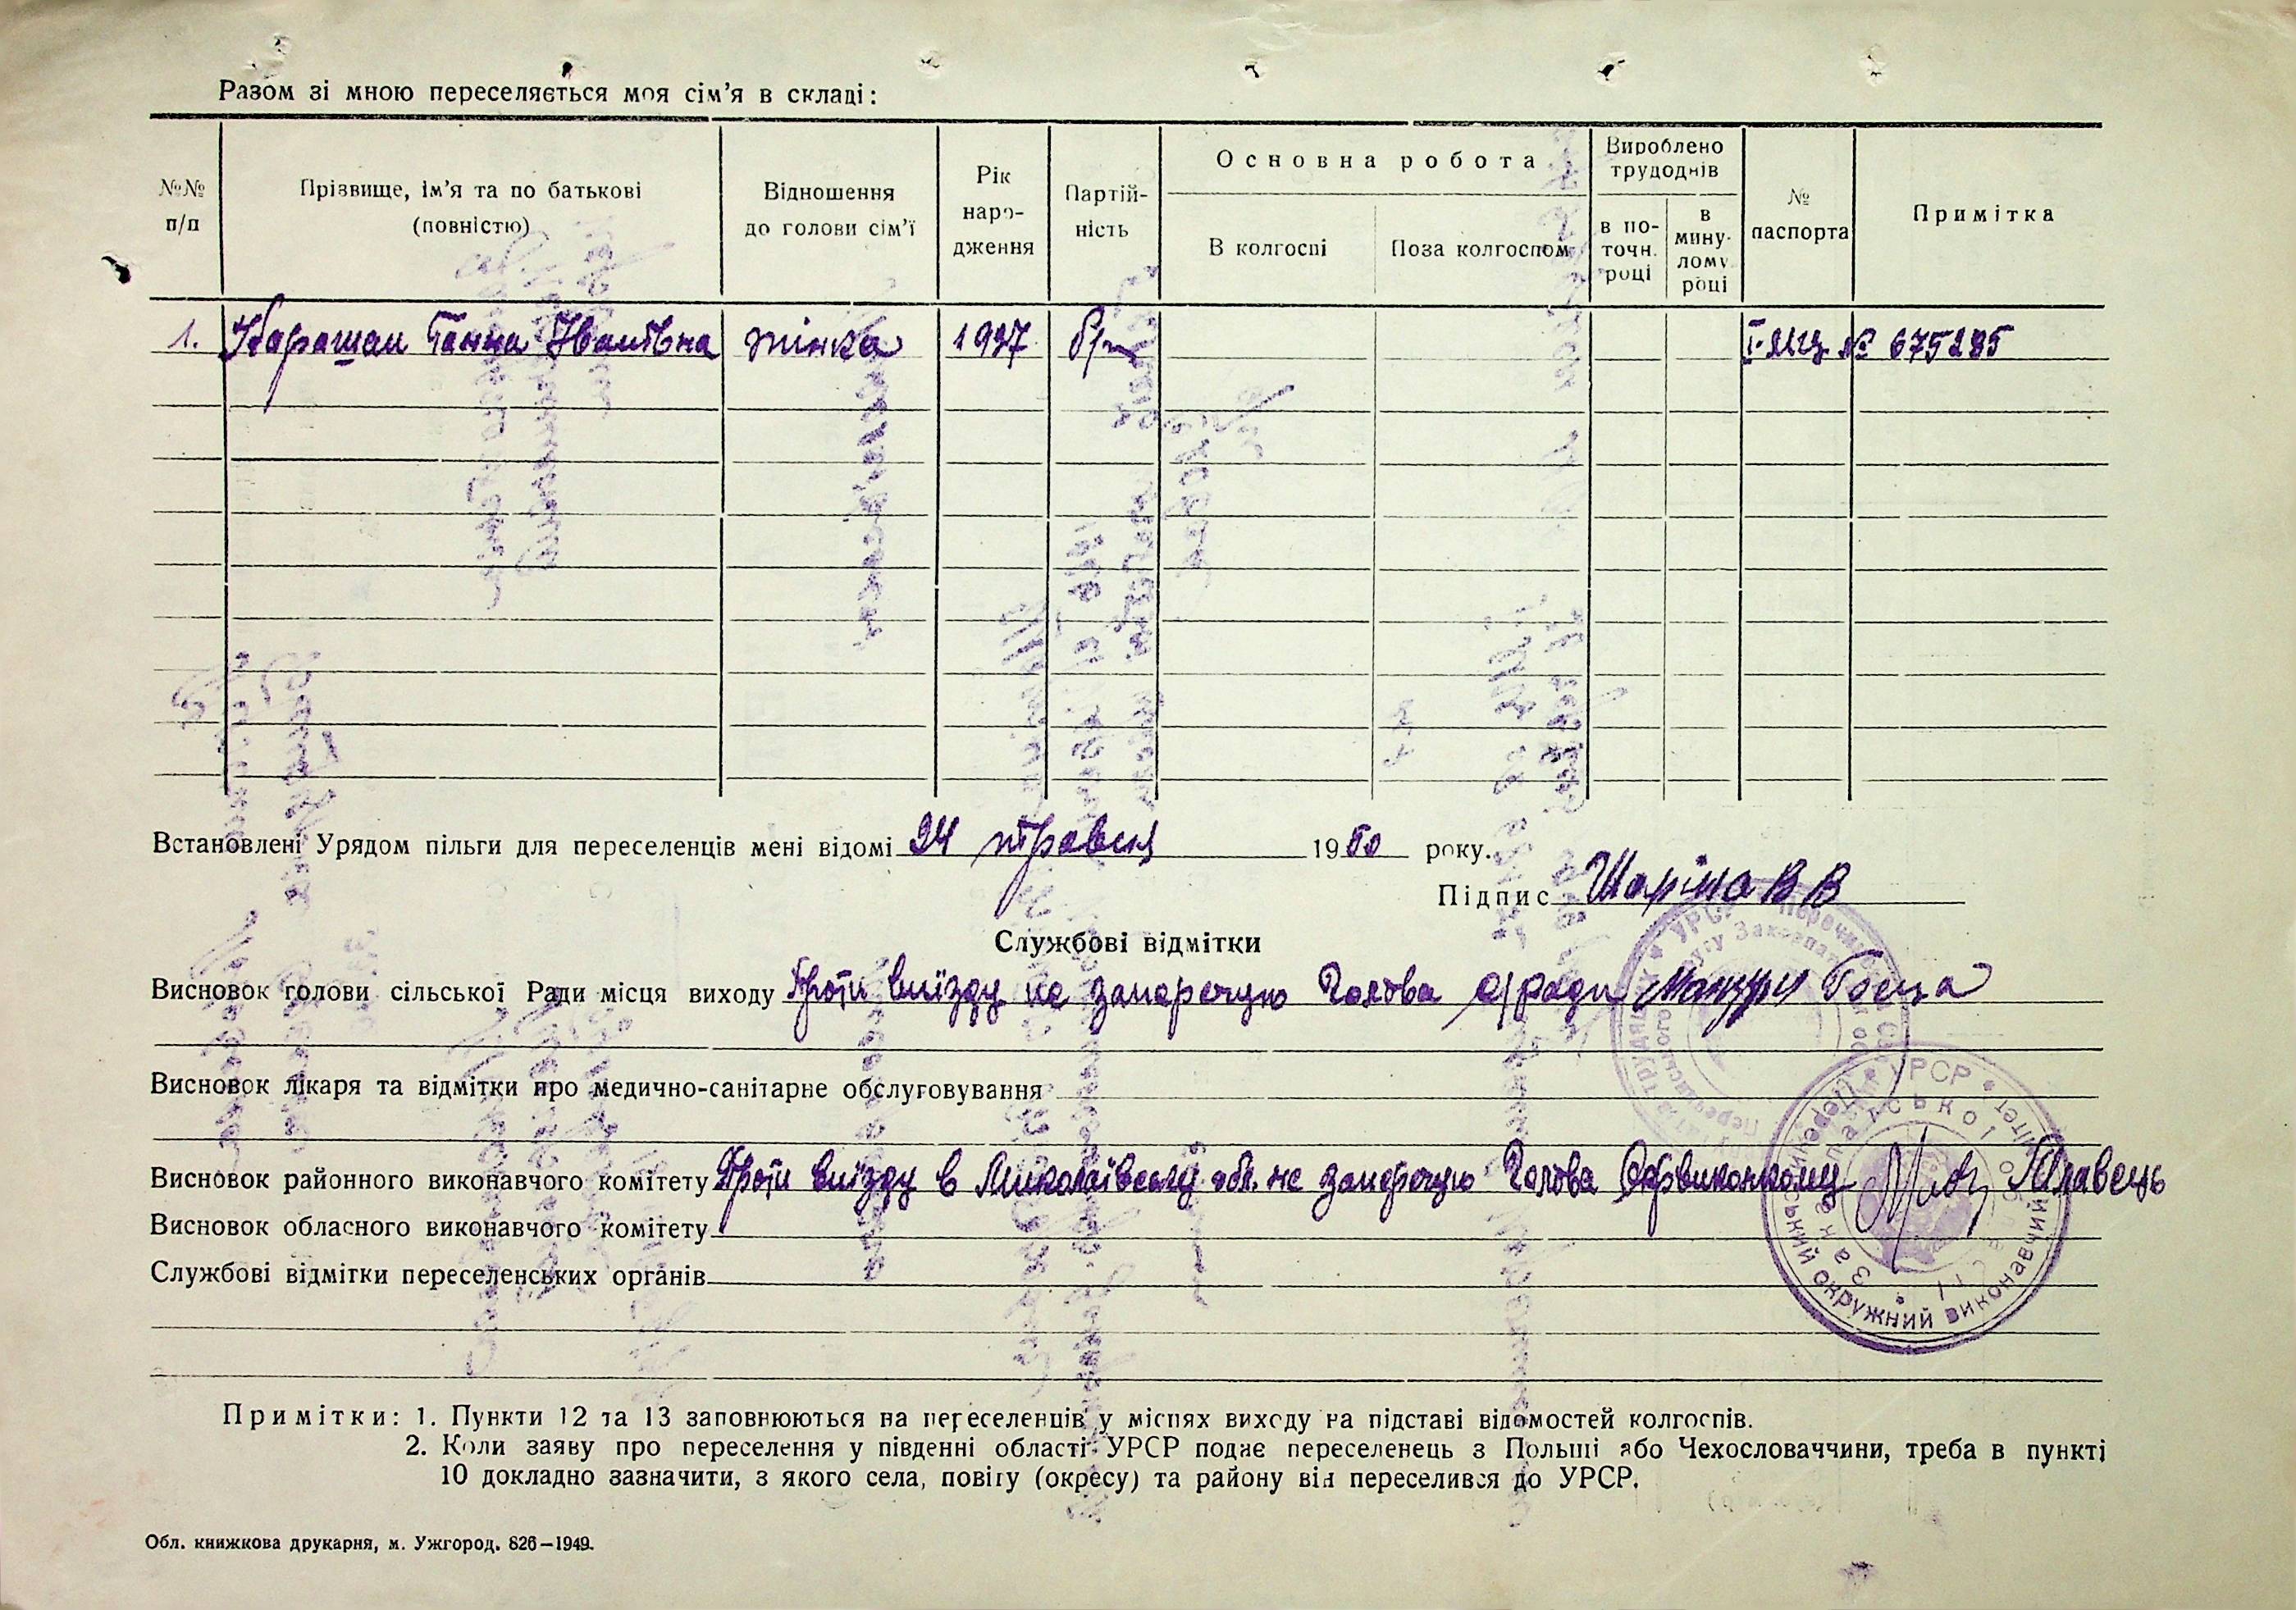 Разом зі мною переселяється моя сім'я в складі:
№№ п/п
Прізвище, ім'я та по батькові (повністю)
Відношення до голови сім'ї
Рік наро-дження
Партій-ність
Основна робота
В колгоспі
Поза колгоспом
Вироблено трудоднів
в по-точн. році
в мину-лому році
№ паспорта
Примітка
1. Ганна Іванівна жінка 1927 б/п № 675285
Встановлені Урядом пільги для переселенців мені відомі 24 травня 1950 року.
Підпис
Службові відмітки
Висновок голови сільської Ради місця виходу Проти виїзду не заперечую Голова с/ради
Висновок лікаря та відмітки про медично-санітарне обслуговування
Висновок районного виконавчого комітету Проти виїзду в Миколаївську обл. не заперечую Голова Окрвиконкому
Висновок обласного виконавчого комітету
Службові відмітки переселенських органів
Примітки: 1. Пункти 12 та 13 заповнюються на переселенців у місцях виходу на підставі відомостей колгоспів.
2. Коли заяву про переселення у південні області УРСР подає переселенець з Польщі або Чехословаччини, треба в пункті
10 докладно зазначити, з якого села, повіту (окресу) та району він переселився до УРСР.
Обл. книжкова друкарня, м. Ужгород. 826—1949.